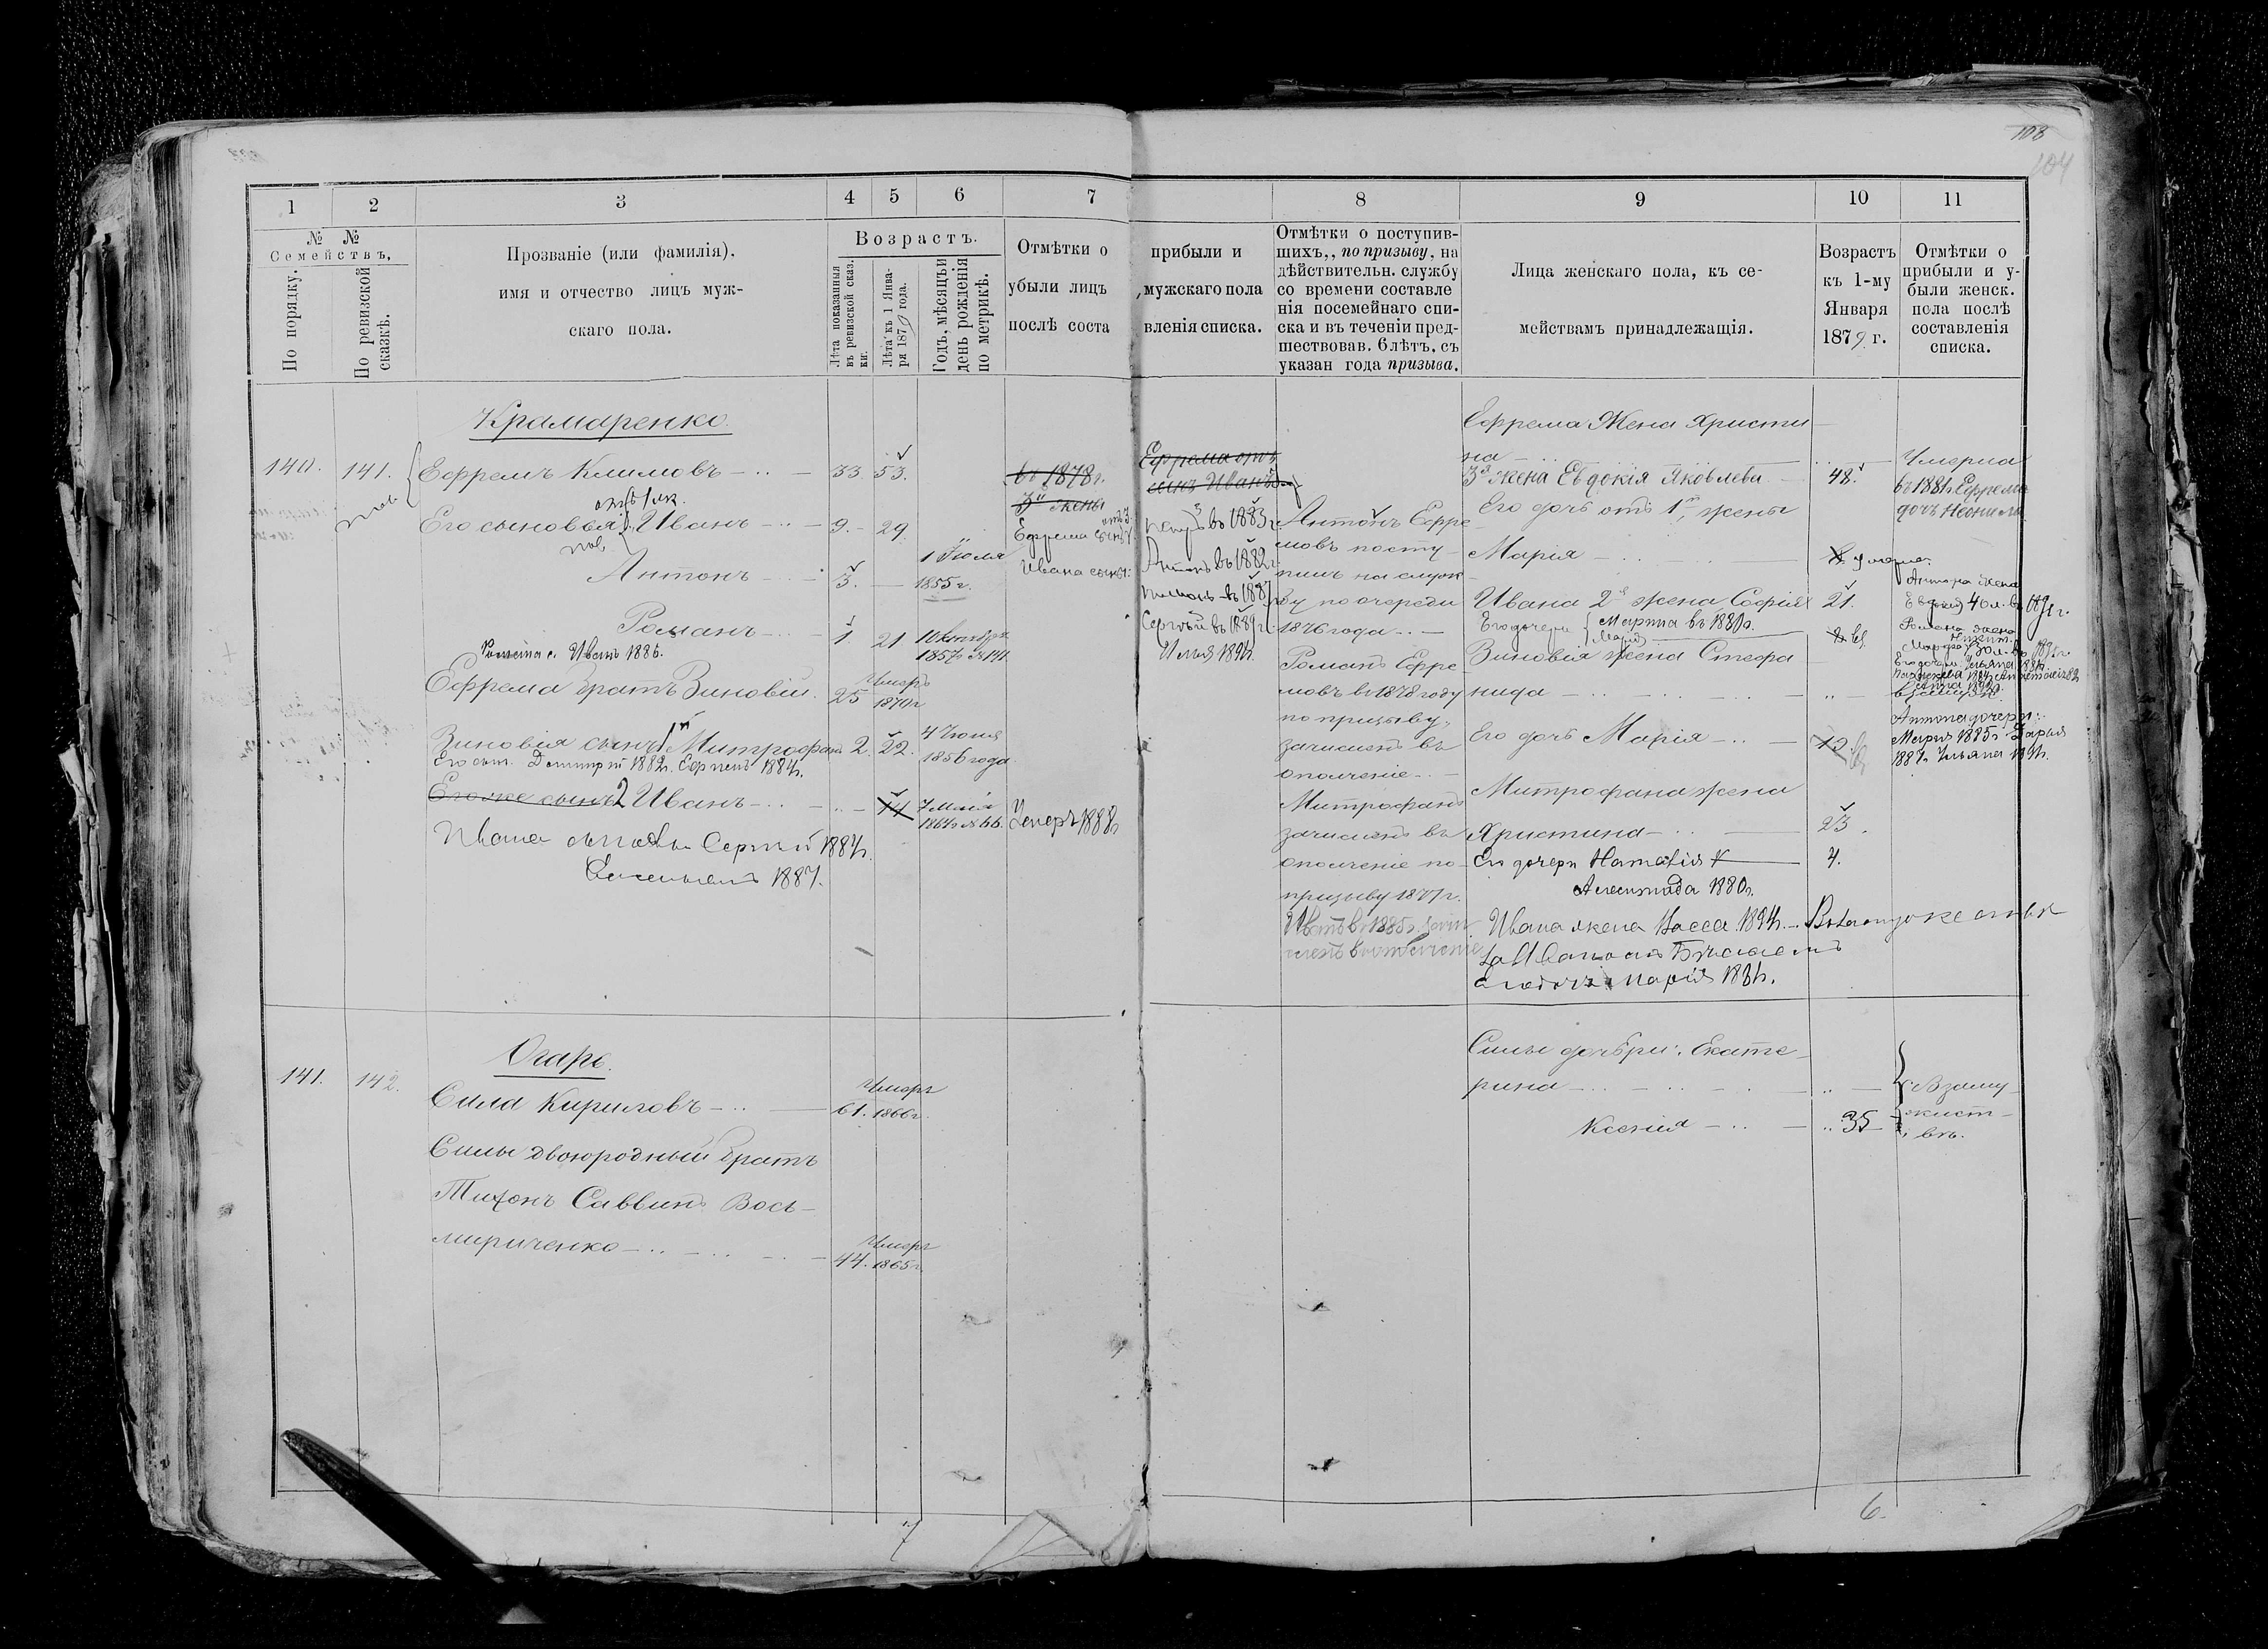 108
104
1 2 3 4 5 6 7 8 9 10 11
№ №
Семействъ,
По порядку.
По ревизской сказкѣ.
Прозваніе (или фамилія),
имя и отчество лицъ муж-
скаго пола.
Возрастъ.
Лѣта показанныя
въ ревизской сказ.
ки.
Лѣта къ 1 Янва-
ря 1879 года.
Годъ, мѣсяцъ и
день рожденія
по метрикѣ.
Отмѣтки о прибыли и
убыли лицъ мужскаго пола
послѣ составленія списка.
Отмѣтки о поступив-
шихъ, по призыву, на
дѣйствительн. службу
со времени составле
нія посемейнаго спи-
ска и въ теченіи пред-
шествовав. 6 лѣтъ, съ
указан года призыва.
Лица женскаго пола, къ се-
мействамъ принадлежащія.
Возрастъ
къ 1-му
Января
1879 г.
Отмѣтки о
прибыли и у-
были женск.
пола послѣ
составленія
списка.
Крамаренко
140. 141. Ефремъ Климовъ 33 53.
Его сыновья Иванъ 9. 29.
Антонъ 3. 1 Іюля
1855 г.
Романъ 1. 21 1 Октября
1857
Романа с. Иванъ 1886.
Ефрема братъ Зиновій. 25 Умеръ
1870 г
Зиновія сынъ 1й Митрофанъ 2. 22. 4 Іюня
1856 года
Его сын. Дмитрій 1882 г. 1884 г.
Его же сынъ 2 Иванъ 14 7 Мая
1864 г № 66.
Умеръ 1888 г
Ивана Сергѣй 1884 г.
1887.
въ 1878 г.
3й жены
Ефрема отъ
сынъ Иванъ
Ефрема сынъ
Петръ въ 1883 г
Ивана сыны: Антонъ въ 1882 г
въ 1887 г
Сергѣй въ 1889 г.
Илья 1894 г.
Антонъ Ефре
мовъ посту-
пилъ на служ-
бу по очереди
1876 года
Романъ Ефре
мовъ въ 1878 году
по призыву,
зачисленъ въ
ополченіе
Митрофанъ
зачисленъ въ
ополченіе по
призыву 1877 г.
Иванъ въ 1885 г. зачи
сленъ въ ополченіе
Ефрема Жена Христи
на
3я жена Евдокія Яковлева 48.
Его дочь отъ 1й жены
Марія умерла.
Ивана 2я жена Софія 21.
Его дочери Марта въ 1880 г.
Марія
Зиновія жена Стефа
нида
Его дочь Марія 12.
Митрофана жена
Христина 23.
Его дочери Наталія 4.
Александра 1880 г.
Ивана жена Васса 1894 г.
Марія 1884 г.
Умерла
въ 1881 г. Ефрема
дочь Неонила
Антона жена
Романа жена
Антона дочери:
Марія 1885 г. Дарья
1887 г. Ульяна 1894 г.
Огарь.
141. 142.
Сила Кириловъ 61. Умеръ
1866 г.
Силы двоюродный братъ
Тихонъ Саввинъ Вось-
мириченко 44. Умеръ
1865 г.
Силы дочери: Екате-
рина
Ксенія 35
Взаму-
жест-
вѣ.
7
6.